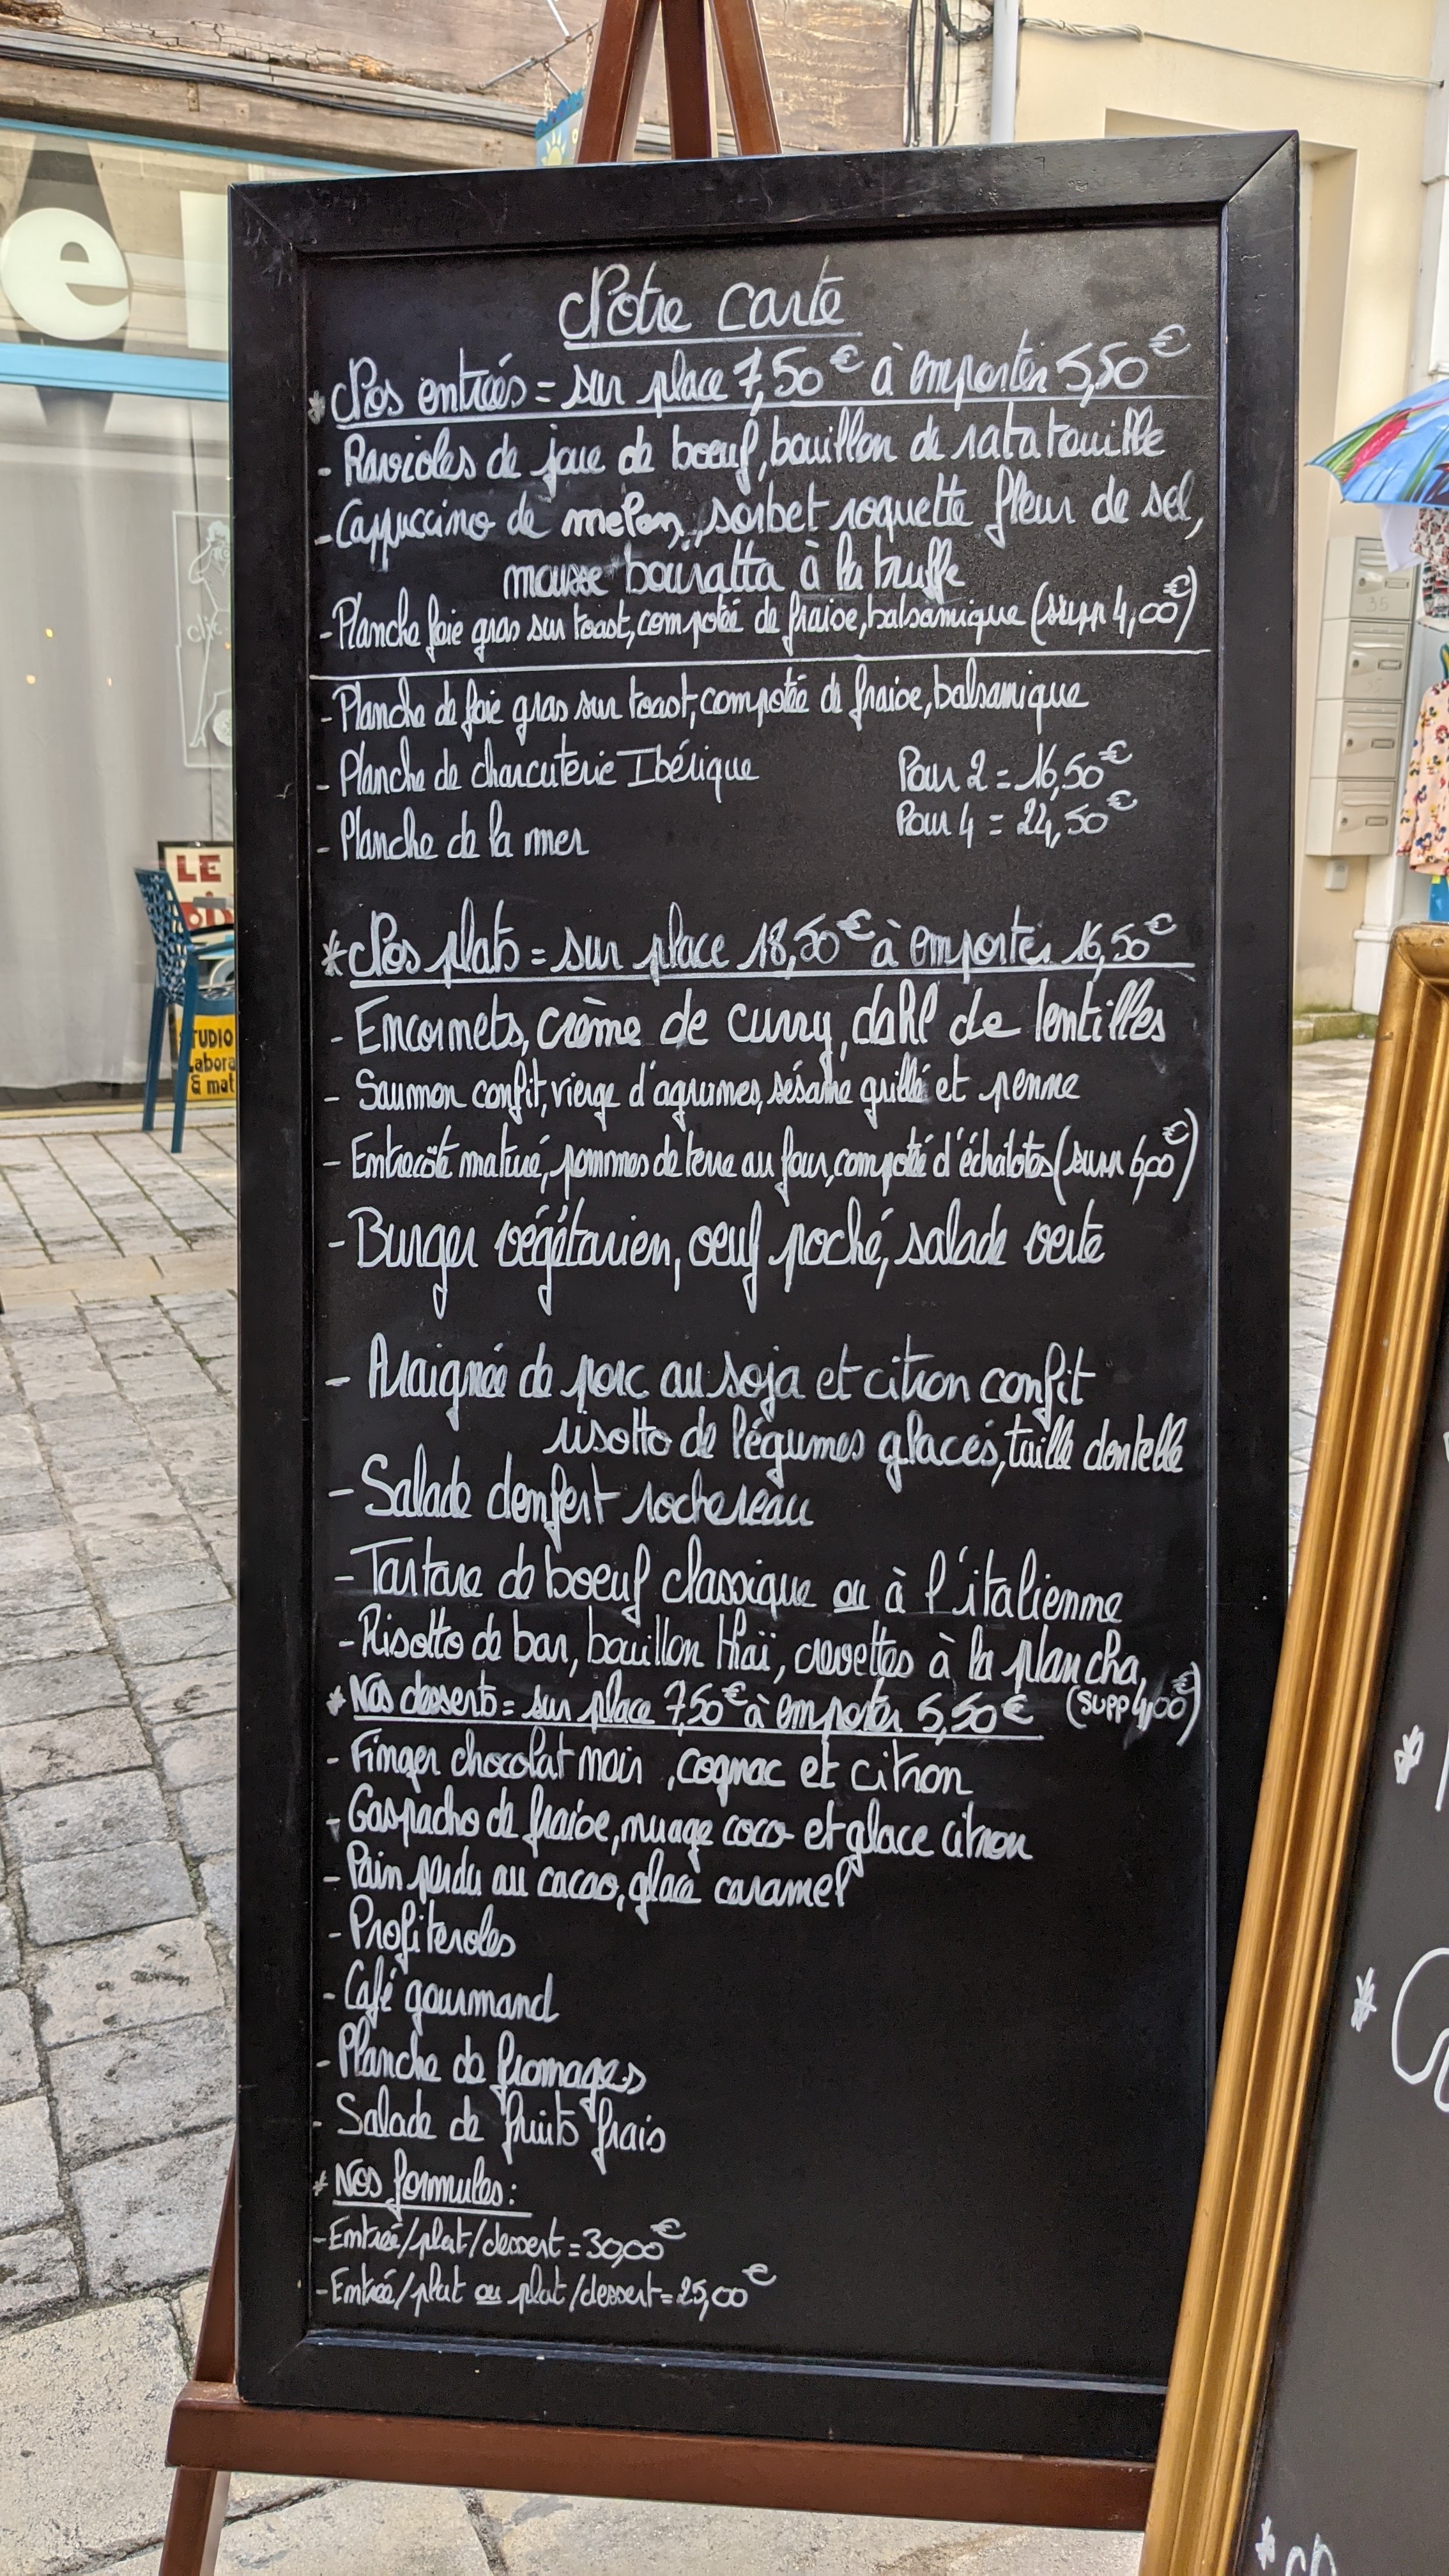 Notre carte
* Nos entrées = sur place 7,50€ à emporter 5,50€
- Ravioles de joue de boeuf, bouillon de ratatouille
- Cappuccino de melon, sorbet roquette fleur de sel,
mousse bouratta à la truffe
- Planche foie gras sur toast, compotée de fraise, balsamique (supp 4,00€)
- Planche de foie gras sur toast, compotée de fraise, balsamique
- Planche de charcuterie Ibérique Pour 2 = 16,50€
- Planche de la mer Pour 4 = 24,50€
* Nos plats = sur place 18,50€ à emporter 16,50€
- Encornets, crème de curry, dahl de lentilles
- Saumon confit, vierge d'agrumes, sésame grillé et penne
- Entrecôte maturé, pommes de terre au four, compotée d'échalotes (supp 6,00€)
- Burger végétarien, oeuf poché, salade verte
- Araignée de porc au soja et citron confit
risotto de légumes glacés, tuille dentelle
- Salade denfert rochereau
- Tartare de boeuf classique ou à l'italienne
- Risotto de bar, bouillon thaï, crevettes à la plancha,
(supp 4,00€)
* Nos desserts = sur place 7,50€ à emporter 5,50€
- Finger chocolat noir, cognac et citron
- Gaspacho de fraise, nuage coco et glace citron
- Pain perdu au cacao, glace caramel
- Profiteroles
- Café gourmand
- Planche de fromages
- Salade de fruits frais
* Nos formules :
- Entrée/plat/dessert = 30,00€
- Entrée/plat ou plat/dessert = 25,00€
LE
STUDIO
Labora
& mat
35